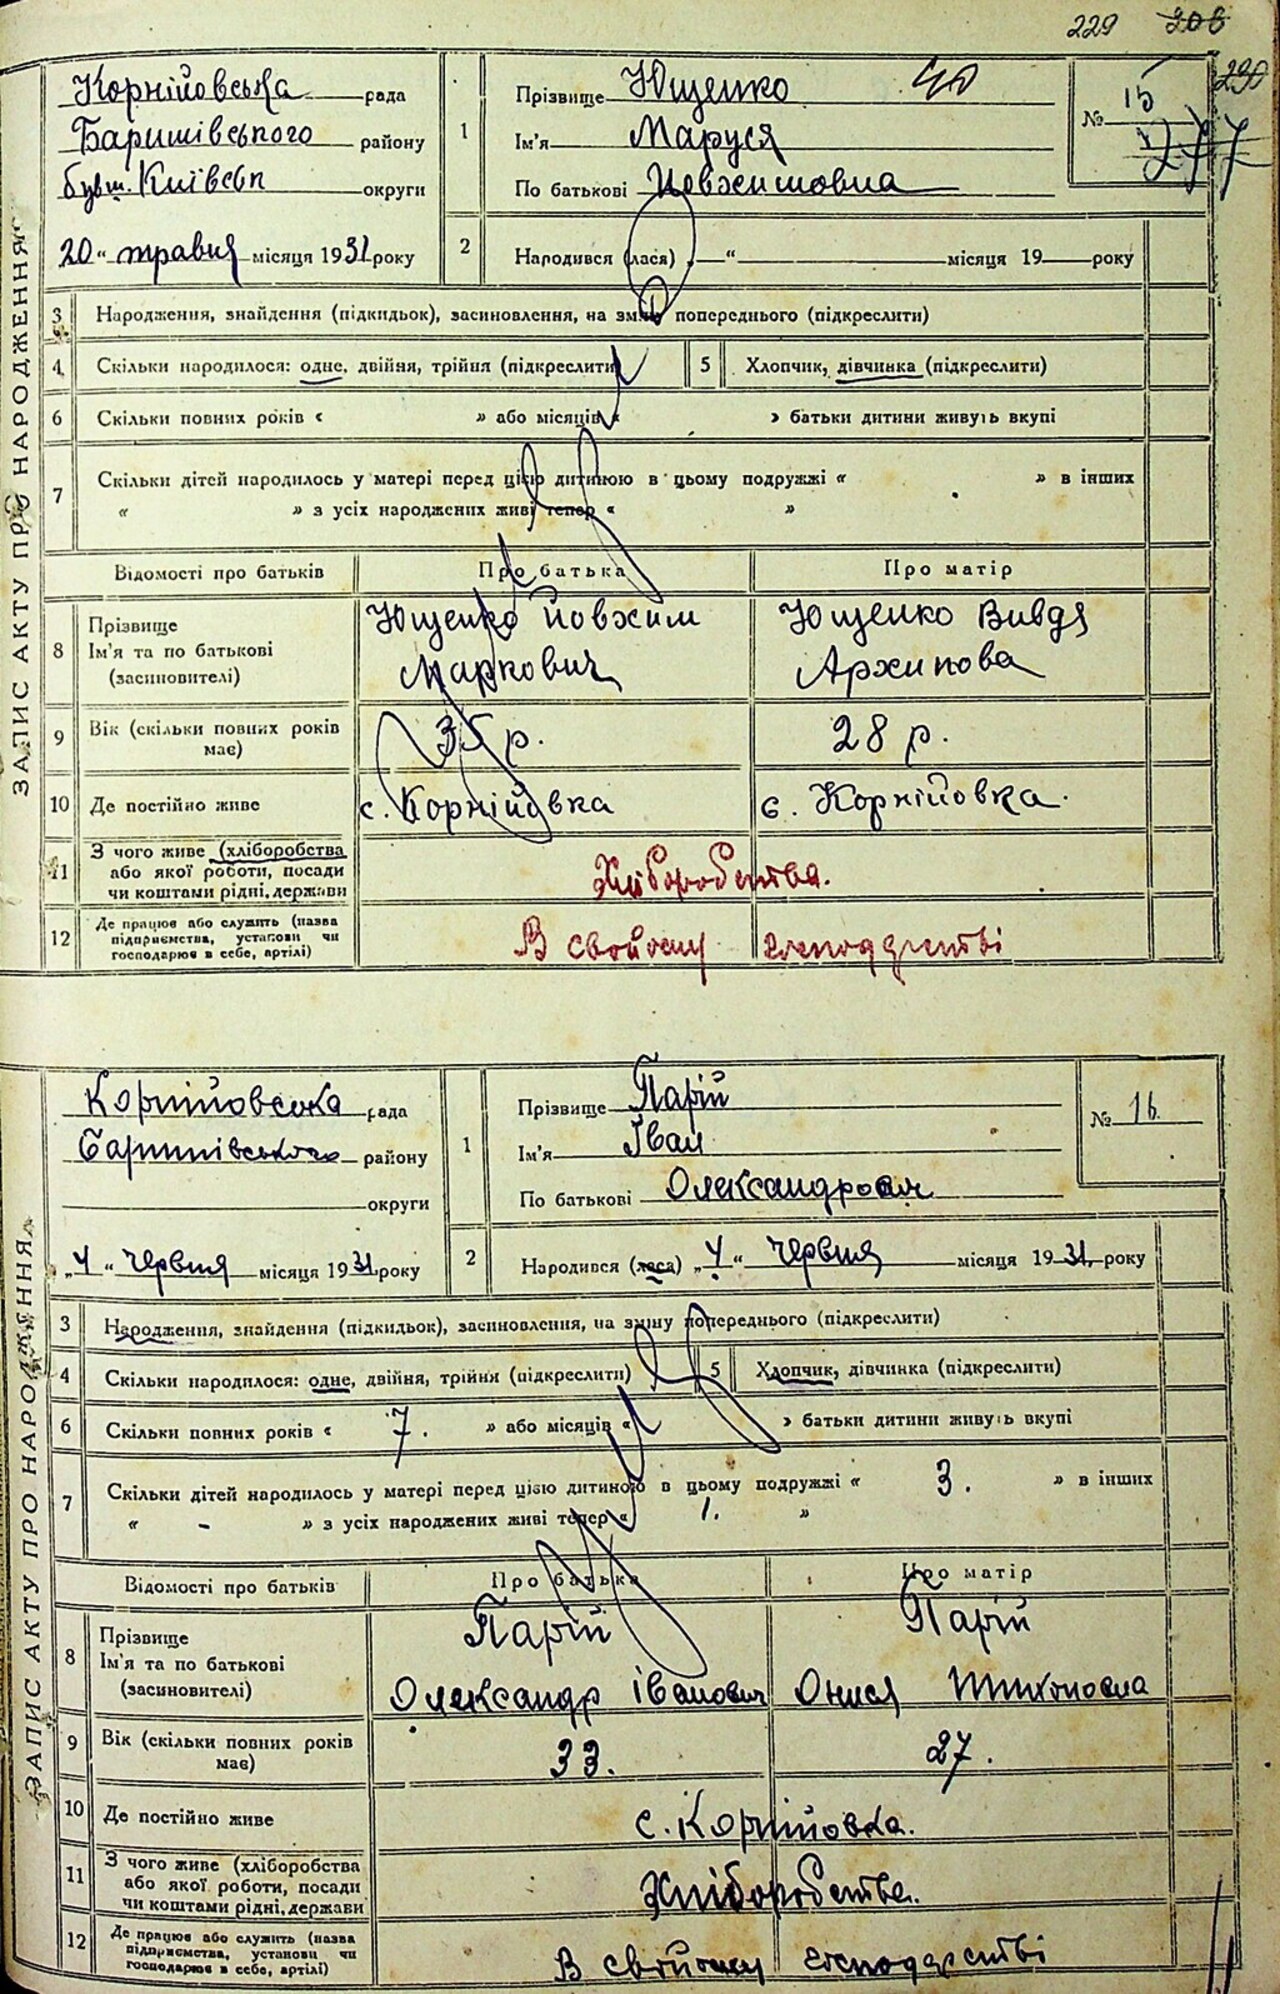 229 208
230
ЗАПИС АКТУ ПРО НАРОДЖЕННЯ
Корнійовська рада
Баришівського району
бувш. Київськ округи
20 " травня місяця 1931 року
1
Прізвище Ющенко 40
Ім'я Маруся
По батькові Йовхимовна
№ 15
277
2 Народився (лася) „—“ місяця 19 року
3 Народження, знайдення (підкидьок), засиновлення, на зміну попереднього (підкреслити)
4 Скільки народилося: одне, двійня, трійня (підкреслити) 5 Хлопчик, дівчинка (підкреслити)
6 Скільки повних років « » або місяців « » батьки дитини живуть вкупі
7 Скільки дітей народилось у матері перед цією дитиною в цьому подружжі « » в інших
« » з усіх народжених живі тепер « »
Відомості про батьків Про батька Про матір
8 Прізвище Ім'я та по батькові (засиновителі)
Ющенко Йовхим Ющенко Вивдя
Маркович Архипова
9 Вік (скільки повних років має) 35 р. 28 р.
10 Де постійно живе с. Корнійовка с. Корнійовка.
11 З чого живе (хліборобства або якої роботи, посади чи коштами рідні, держави Хліборобства.
12 Де працює або служить (назва підприємства, установи чи господарює в себе, артілі) В свойому господарстві
ЗАПИС АКТУ ПРО НАРОДЖЕННЯ
Корнійовська рада
Баришівського району
округи
„4 " червня місяця 1931 року
1
Прізвище Парій
Ім'я Іван
По батькові Олександрович
№ 16.
2 Народився (лася) „4 “ червня місяця 1931 року
3 Народження, знайдення (підкидьок), засиновлення, на зміну попереднього (підкреслити)
4 Скільки народилося: одне, двійня, трійня (підкреслити) 5 Хлопчик, дівчинка (підкреслити)
6 Скільки повних років « 7. » або місяців « » батьки дитини живуть вкупі
7 Скільки дітей народилось у матері перед цією дитиною в цьому подружжі « 3. » в інших
« - » з усіх народжених живі тепер « 1. »
Відомості про батьків Про батька Про матір
8 Прізвище Ім'я та по батькові (засиновителі)
Парій Парій
Олександр Іванович Онися Тихоновна
9 Вік (скільки повних років має) 33. 27.
10 Де постійно живе с. Корнійовка.
11 З чого живе (хліборобства або якої роботи, посади чи коштами рідні, держави Хліборобства.
12 Де працює або служить (назва підприємства, установи чи господарює в себе, артілі) В свойому господарстві